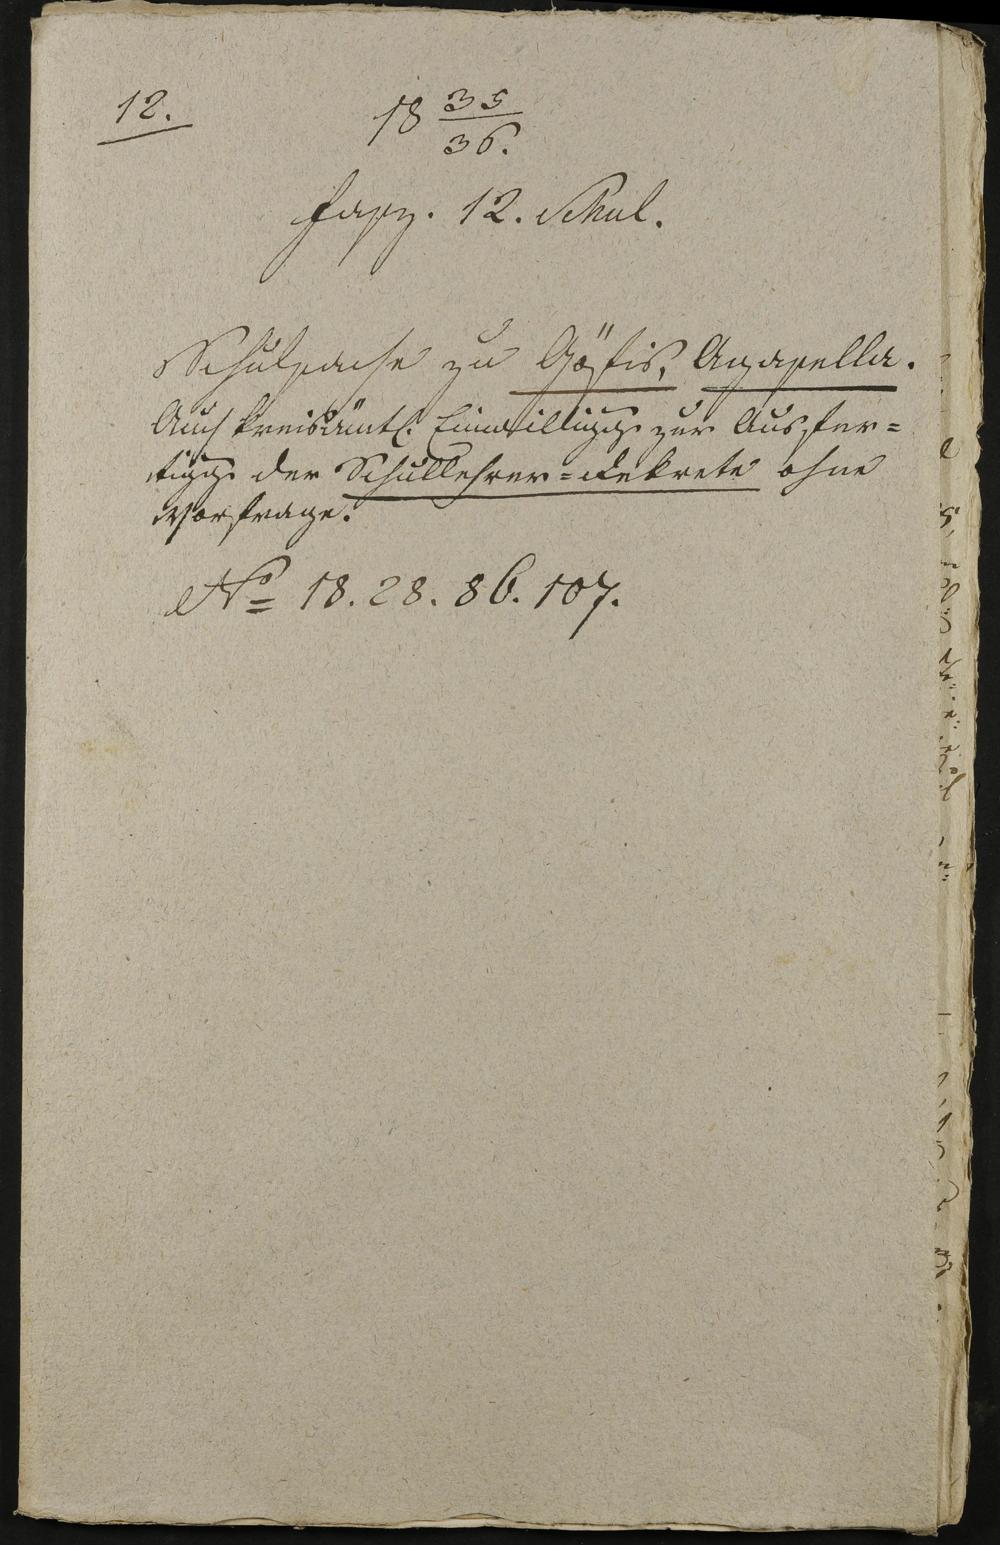 12.
18 35/36.
Fasz. 12. Schul.
Schulsache zu Göfis, Agasella.
Auch kreisämtl. Einwilligg. zur Ausfer=
tigg. der Schullehrer=Dekrete ohne
Vorfrage.
No 18. 28. 86. 107.